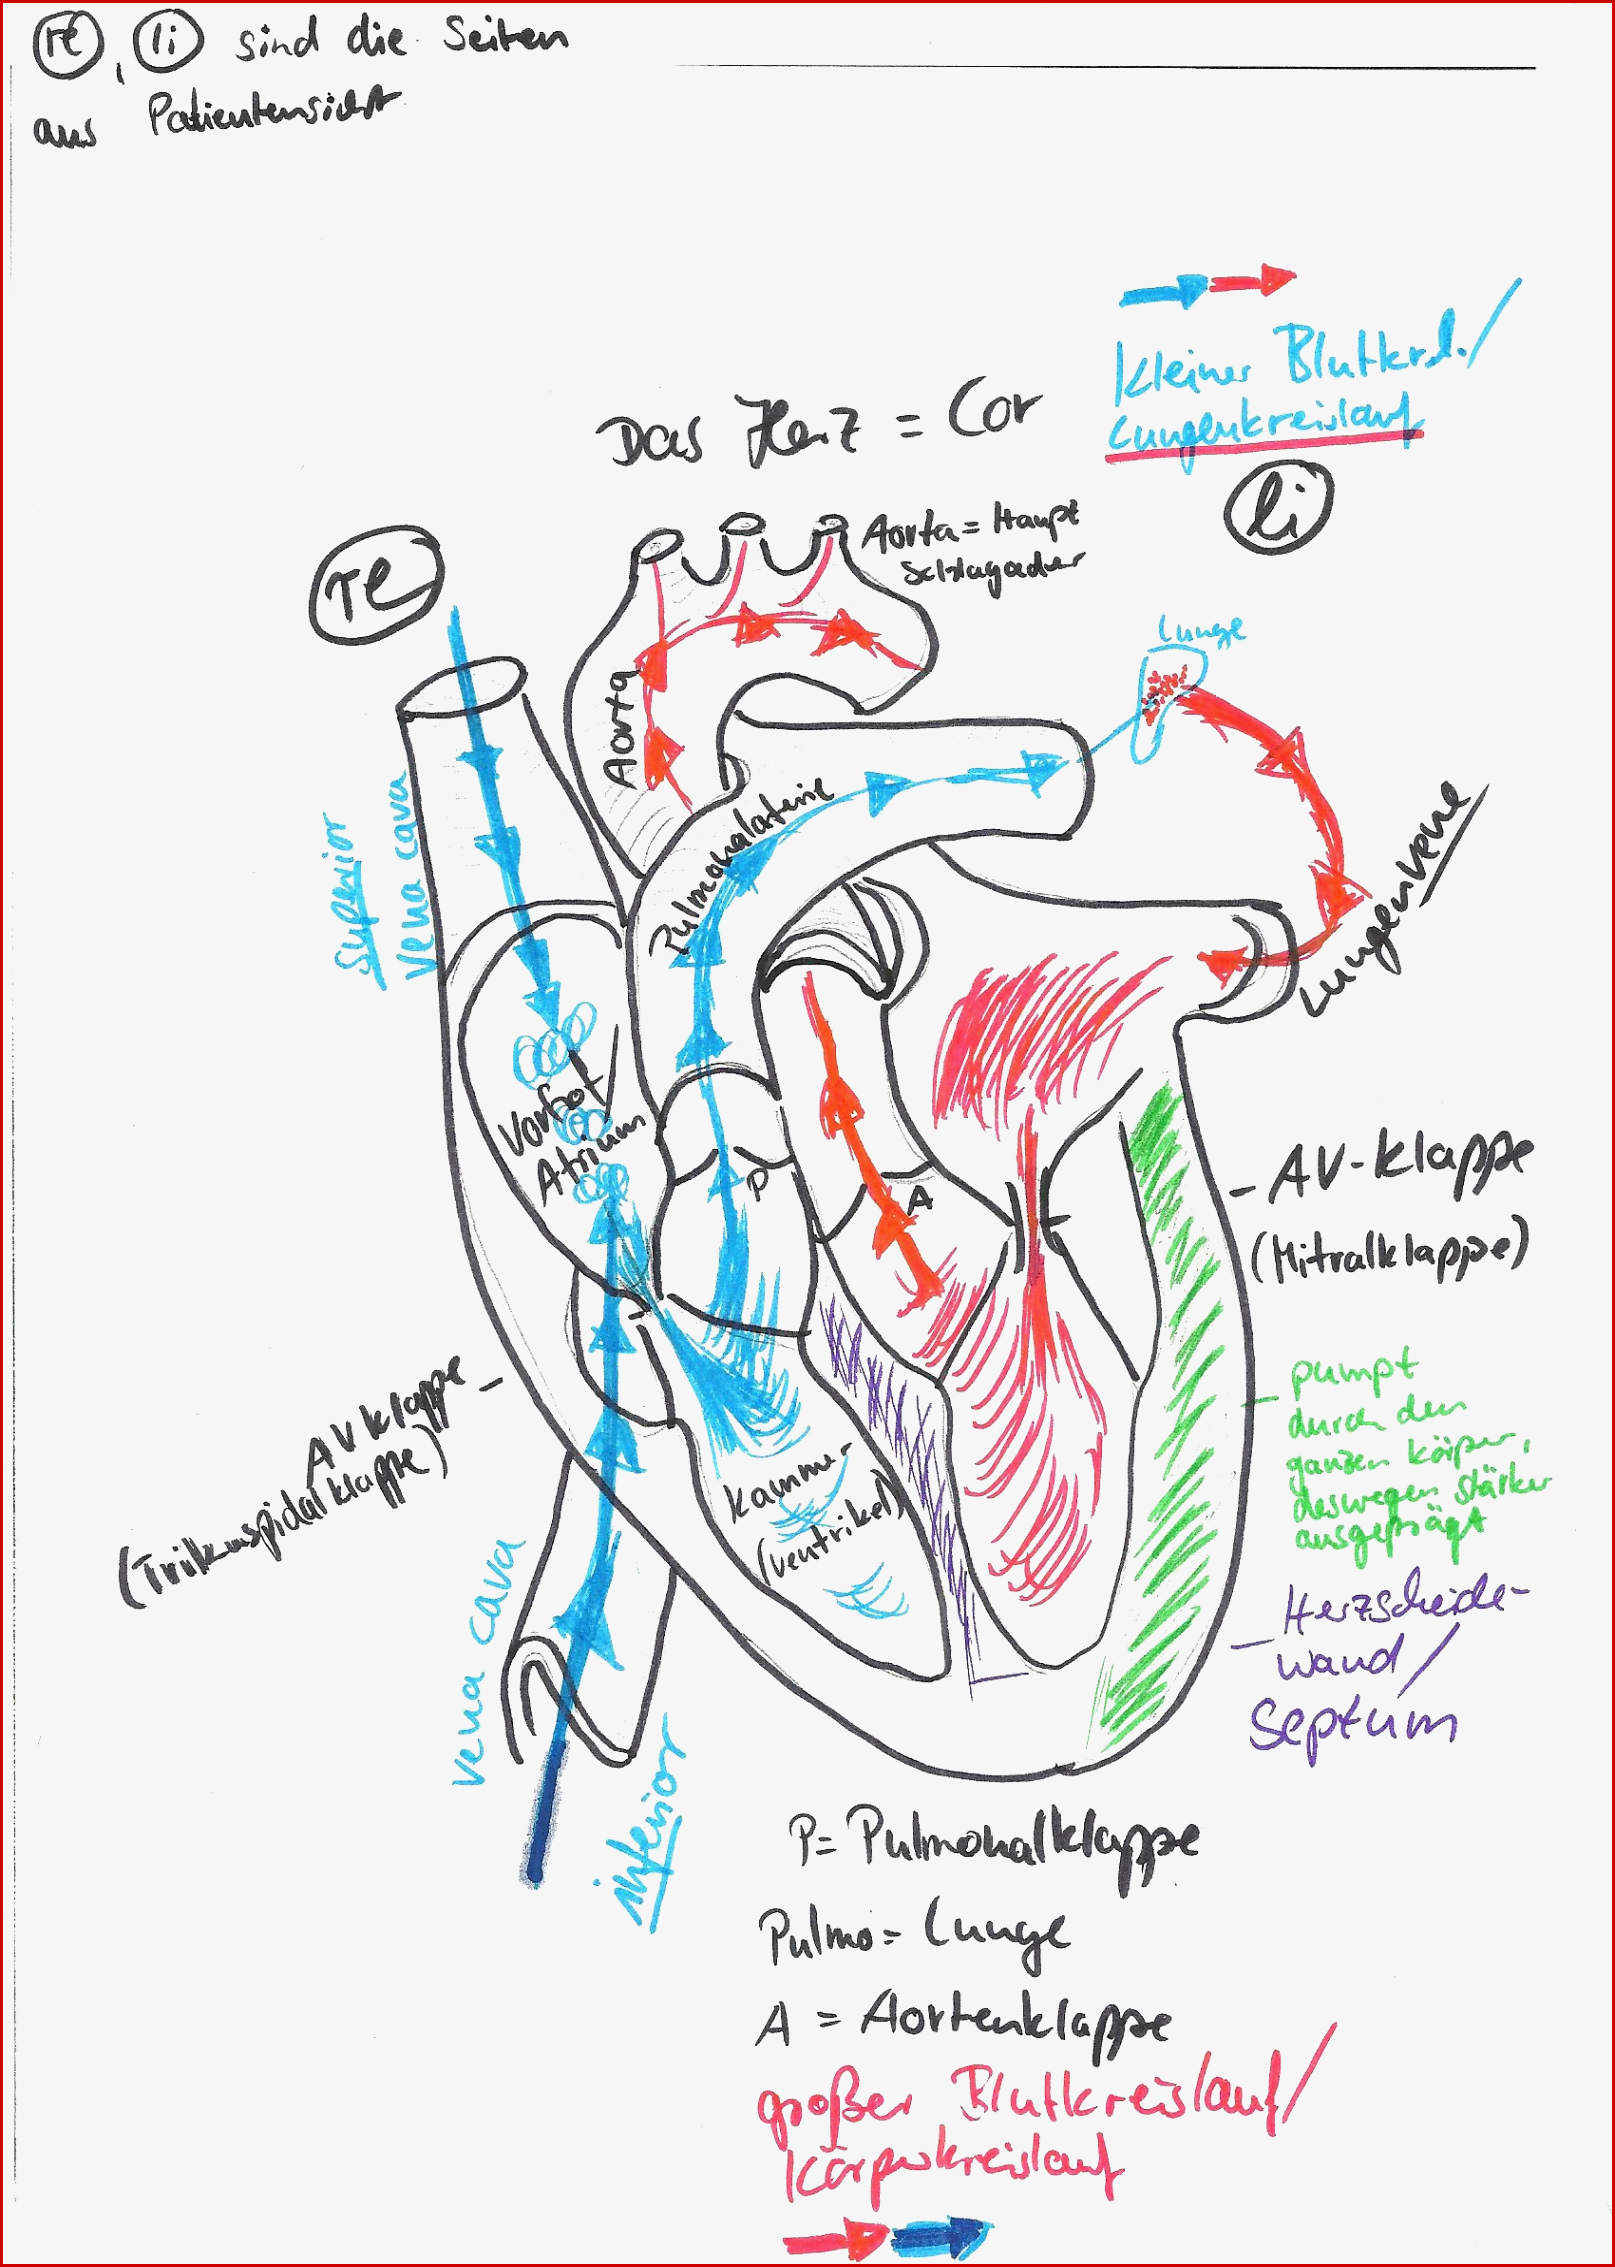 re, li sind die Seiten
aus Patientensicht
kleiner Blutkrsl./
Lungenkreislauf
Das Herz = Cor
li
re
Aorta = Haupt
Schlagader
Lunge
Aorta
Superior
Vena cava
Pulmonalaterie
Lungenvene
Vorhof/
Atrium
P
A
- AV-Klappe
(Mitralklappe)
AV Klappe -
(Trikuspidalklappe)
- pumpt
durch den
ganzen Körper,
deswegen stärker
ausgeprägt
Kammer
(ventrikel)
- Herzscheide-
wand/
Septum
vena cava
inferior
P = Pulmonalklappe
Pulmo = Lunge
A = Aortenklappe
großer Blutkreislauf/
Körperkreislauf